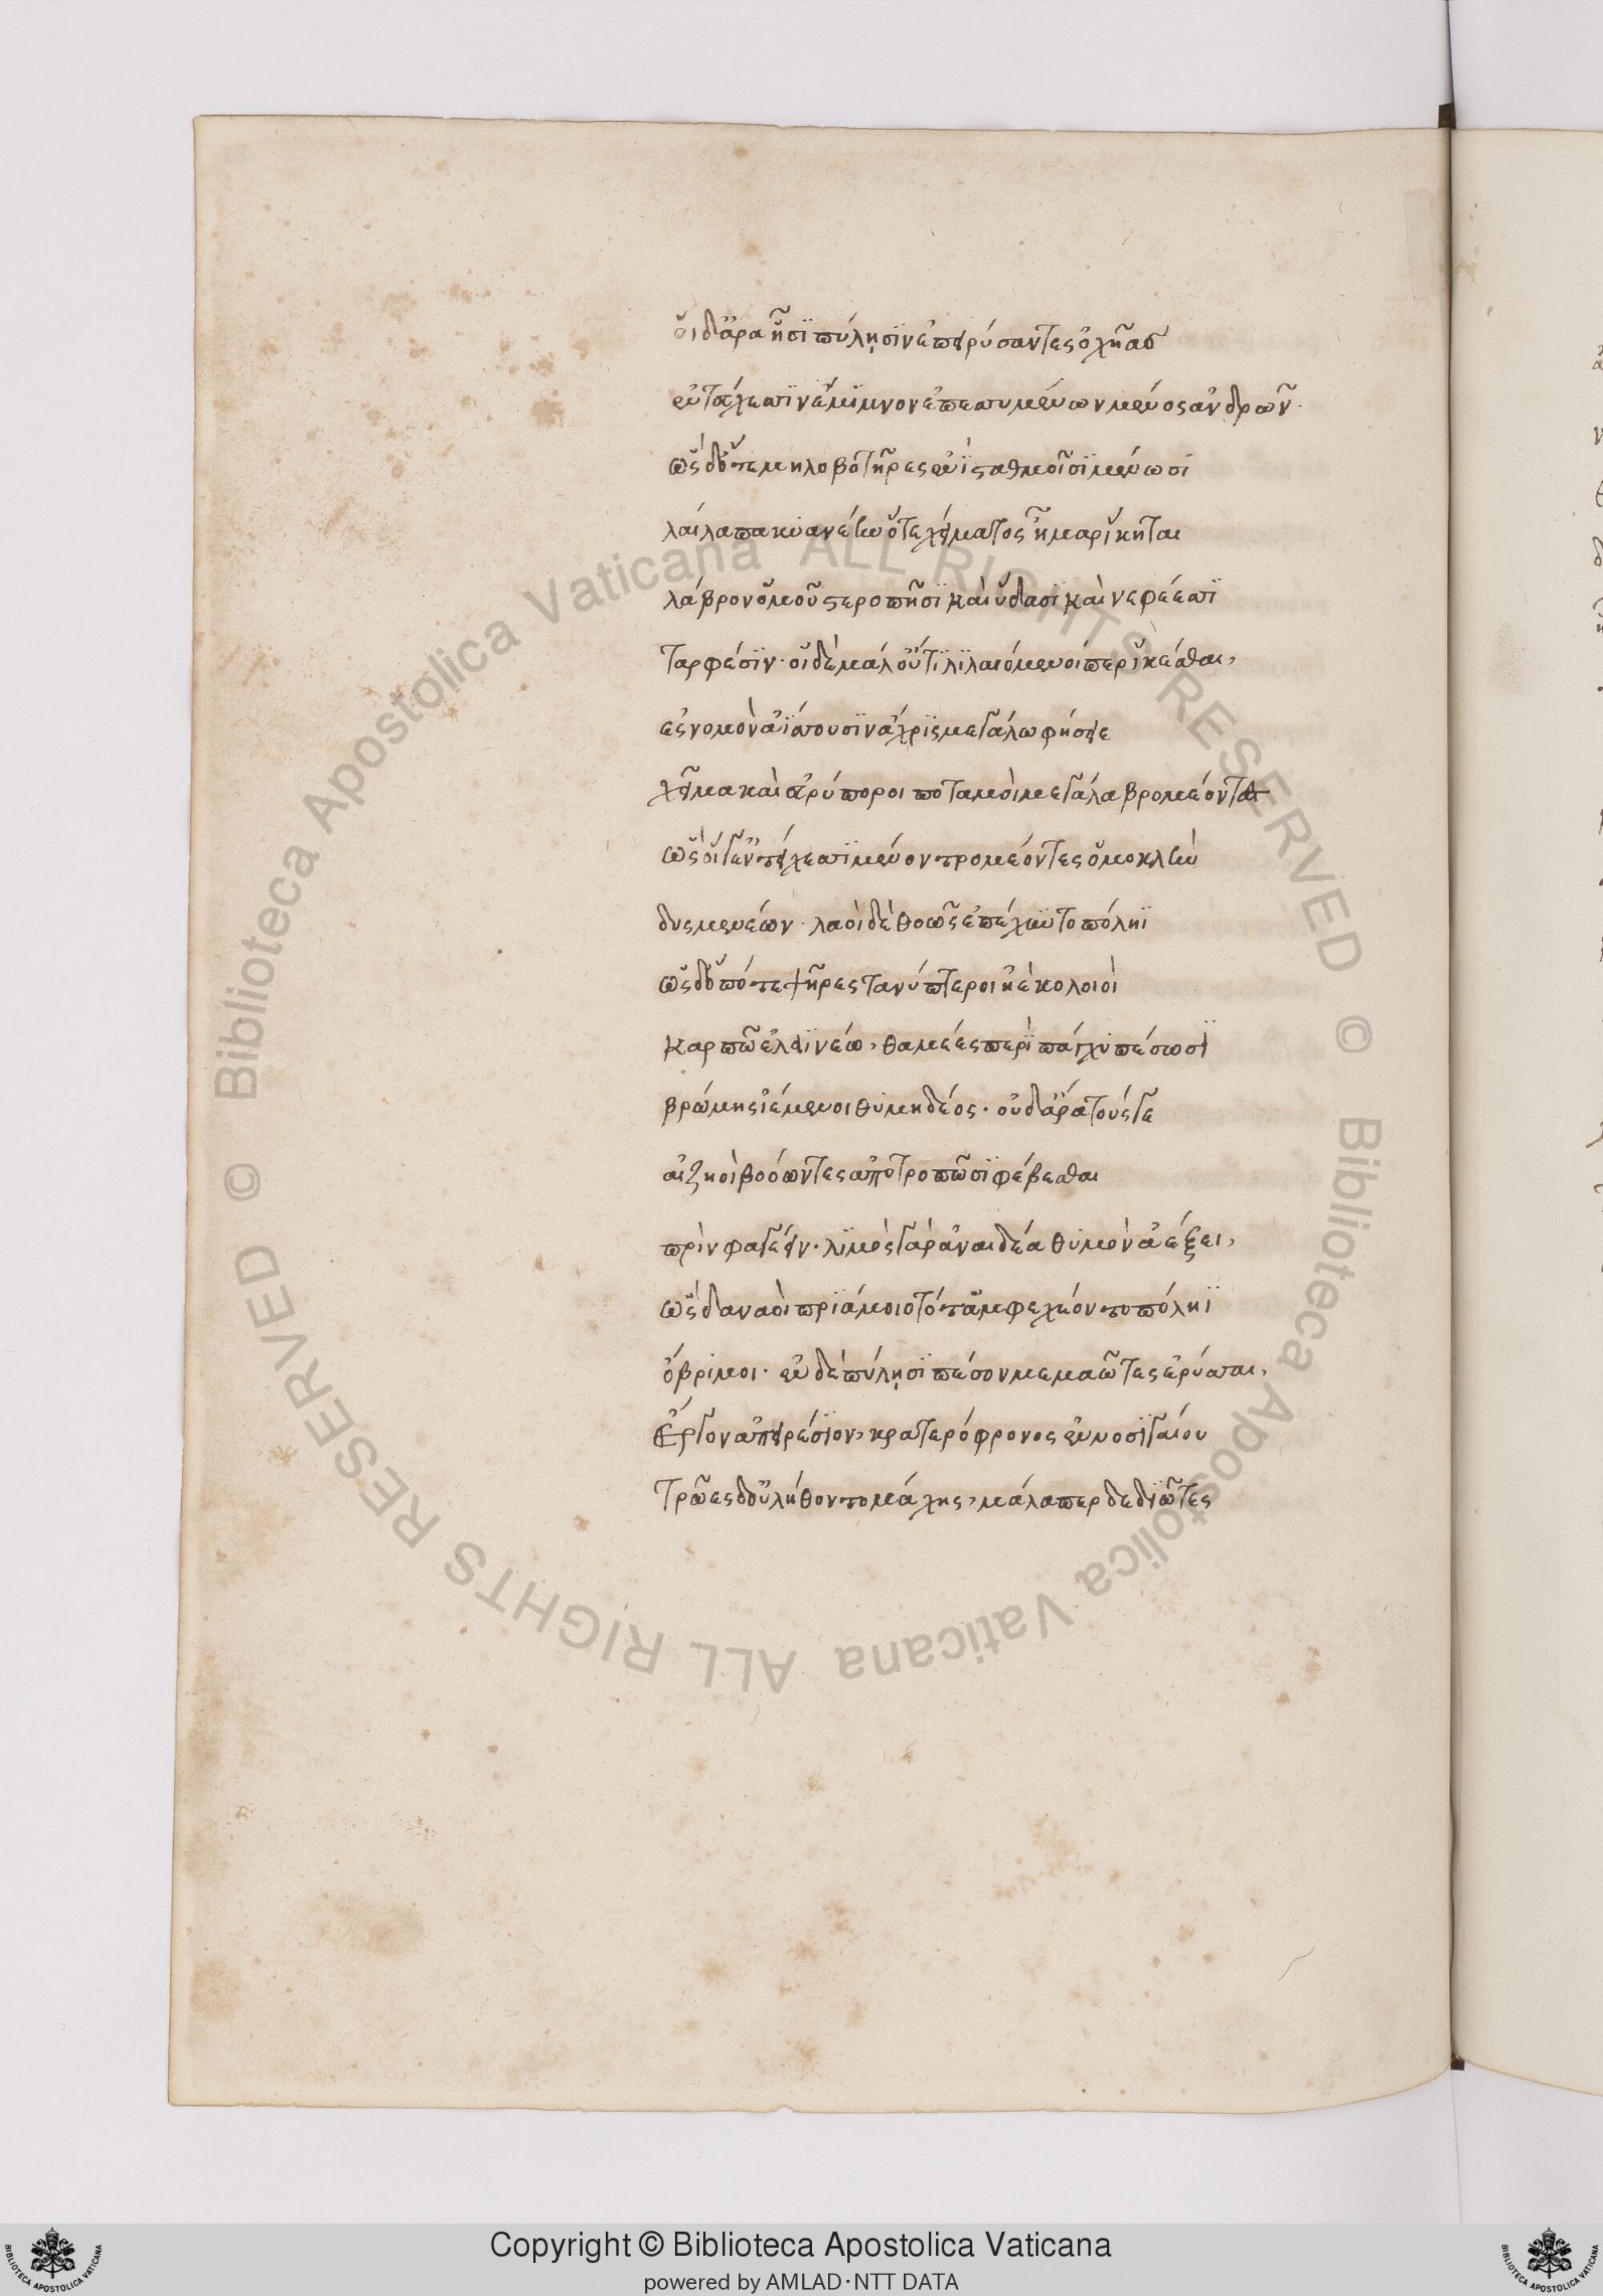 οἵ δ' ἄρα ᾗσι πύλῃσιν ἐπειρύσαντες ὀχῆας
ἐν τείχεσσιν ἔμιμνον ἐπεσσυμένων μένος ἀνδρῶν·
ὡς δ' ὅτε μηλοβοτῆρες ἐνὶ σταθμοῖσι μένωσι
λαίλαπα κυανέην ὅτε χείματος ἦμαρ ἵκηται
λάβρον ὁμοῦ στεροπῇσι καὶ ὕδασι καὶ νεφέεσσι
ταρφέσιν· οἱ δὲ μάλ' οὔτι λιλαιόμενοί περ ἱκέσθαι,
ἐς νομὸν ἀΐσσουσιν ἄχρις μέγα λωφήσειε
χεῖμα καὶ εὐρύποροι ποταμοὶ μεγάλα βρομέοντες
ὣς οἵ γ' ἐν τείχεσσι μένον τρομέοντες ὁμοκλὴν
δυσμενέων· λαοὶ δὲ θοῶς ἐπέχυντο πόληϊ
ὡς δ' ὁπότε ψῆρες τανύπτεροι ἠὲ κολοιοὶ
καρπῷ ἐλαϊνέῳ, θαμέες περὶ πάγχυ πέσωσι
βρώμης ἱέμενοι θυμηδέος· οὐδ' ἄρα τούς γε
αἰζηοὶ βοόωντες ἀποτρωπῶσι φέβεσθαι
πρὶν φαγέειν· λιμὸς γὰρ ἀναιδέα θυμὸν ἀέξει,
ὣς Δαναοὶ Πριάμοιο τότ' ἀμφεχέοντο πόληϊ
ὄβριμοι· ἐν δὲ πύλῃσι πέσον μεμαῶτες ἐρύσσαι,
Ἔργον ἀπειρέσιον, κρατερόφρονος ἐννοσιγαίου
Τρῶες δ' οὐ λήθοντο μάχης, μάλα περ δεδιῶτες
Copyright © Biblioteca Apostolica Vaticana
powered by AMLAD·NTT DATA